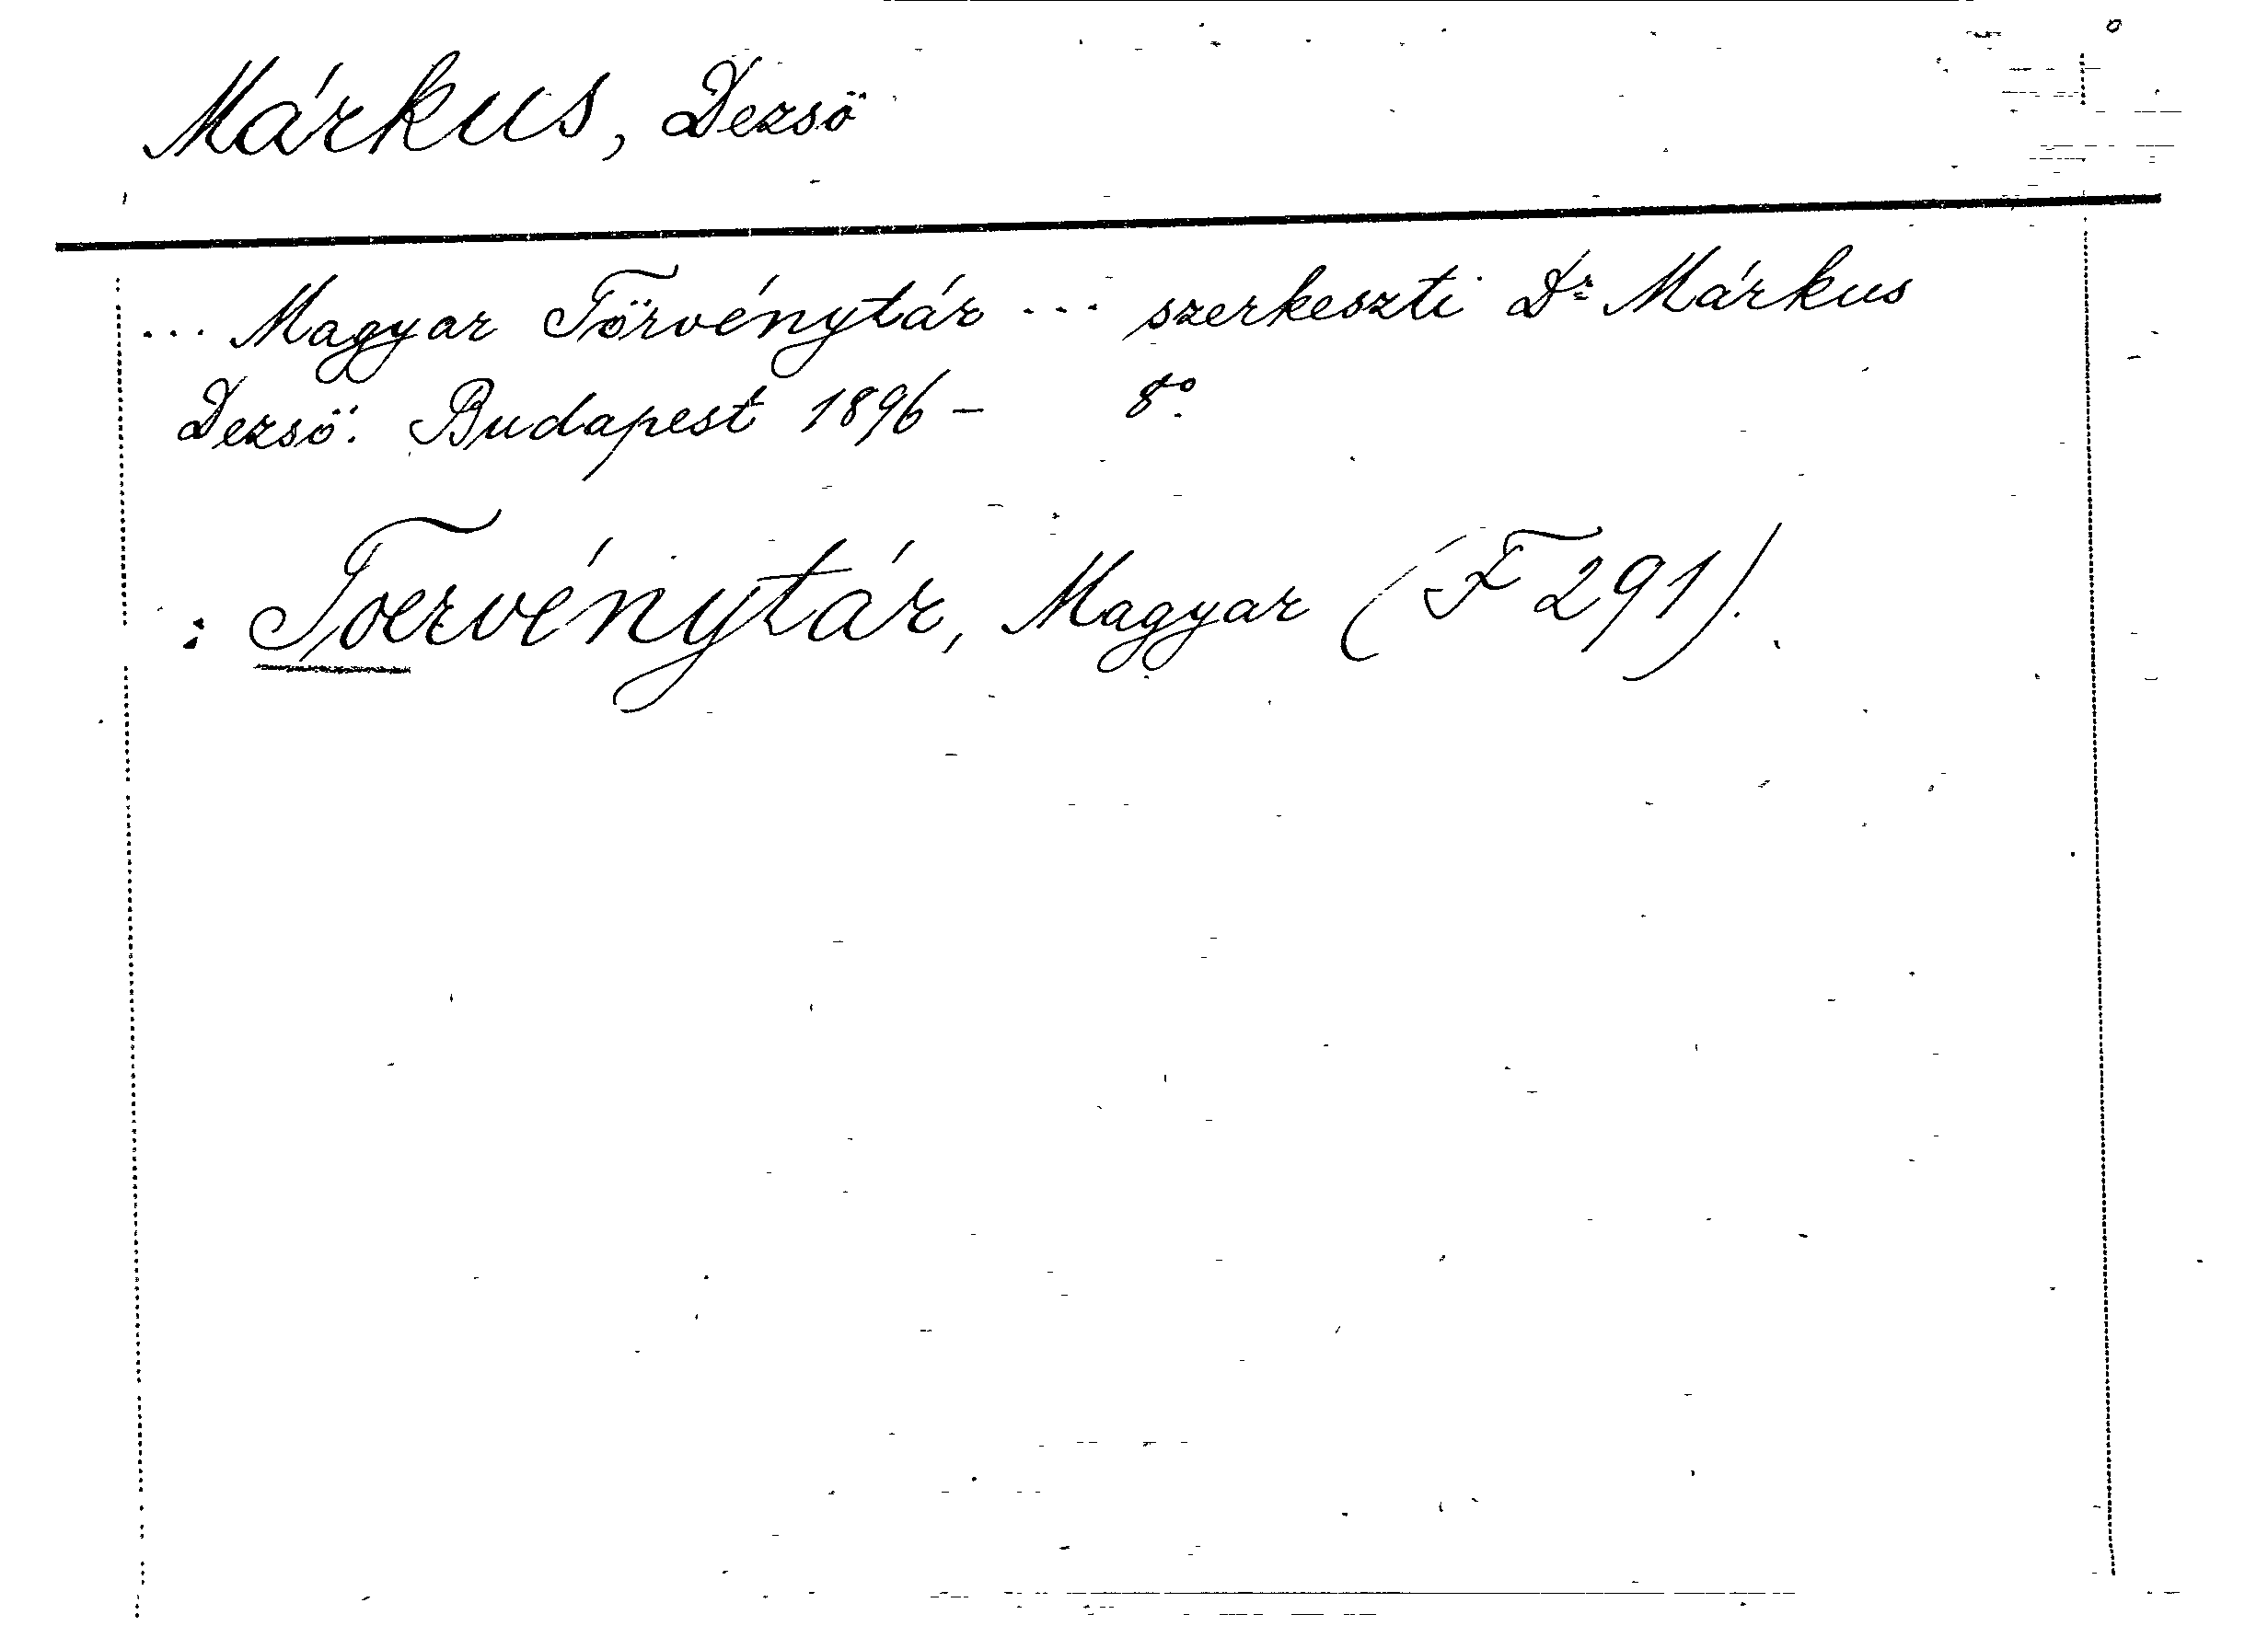 Márkus, Dezsö
... Magyar Törvénytár ... szerkeszti Dr. Márkus
Dezsö. Budapest 1896- 8°.
: Toervénytár, Magyar (F 291).